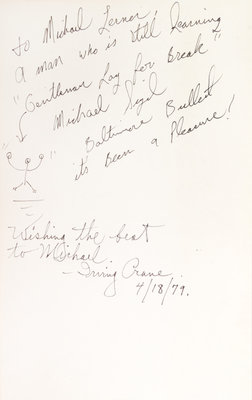 To Michael Lerner,
A man who is still learning
"Gentleman Lay for Break"
Michael Sigel
Baltimore Bullet
it's been a Pleasure!
Wishing the best
to Michael
- Irving Crane
4/18/79.